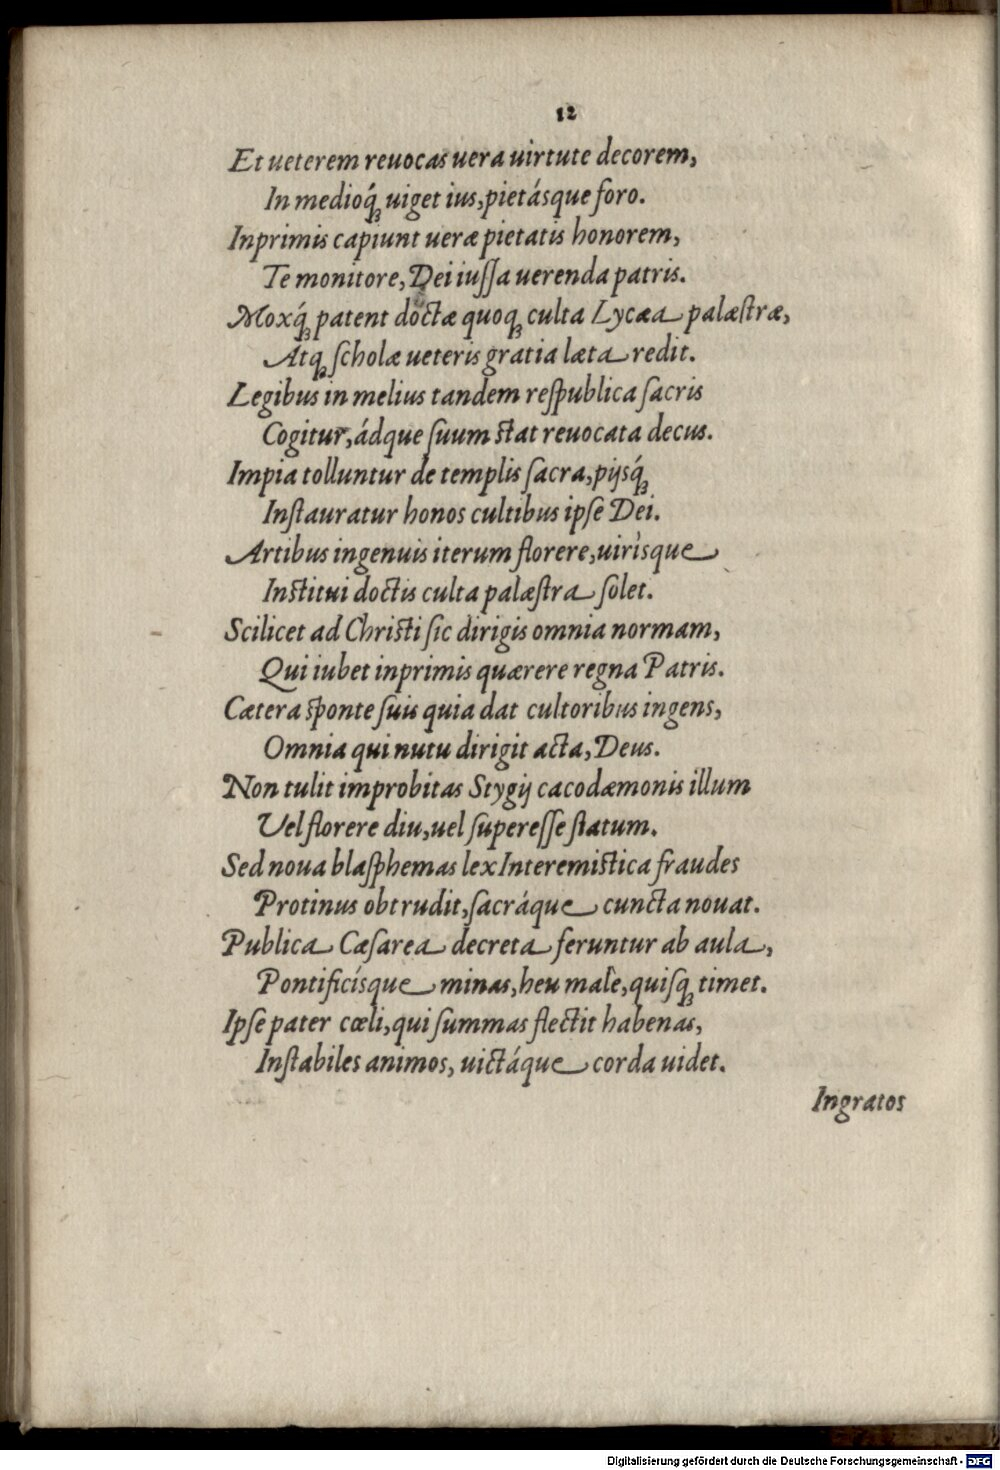 12
Et ueterem reuocas uera uirtute decorem,
In medioq́ꝫ uiget ius, pietásque foro.
Inprimis capiunt ueræ pietatis honorem,
Te monitore, Dei iuſſa uerenda patris.
Moxq́ꝫ patent doctæ quoqꝫ culta Lycæa palæſtræ,
Atqꝫ ſcholæ ueteris gratia læta redit.
Legibus in melius tandem reſpublica ſacris
Cogitur, ádque ſuum ſtat reuocata decus.
Impia tolluntur de templis ſacra, pijsq́ꝫ
Inſtauratur honos cultibus ipſe Dei.
Artibus ingenuis iterum florere, uirìsque
Inſtitui doctis culta palæſtra ſolet.
Scilicet ad Chriſti ſic dirigis omnia normam,
Qui iubet inprimis quærere regna Patris.
Cætera ſponte ſuis quia dat cultoribus ingens,
Omnia qui nutu dirigit acta, Deus.
Non tulit improbitas Stygij cacodæmonis illum
Vel florere diu, uel ſupereſſe ſtatum.
Sed noua blaſphemas lex Interemiſtica fraudes
Protinus obtrudit, ſacráque cuncta nouat.
Publica Cæſarea decreta feruntur ab aula,
Pontificísque minas, heu malè, quiſqꝫ timet.
Ipſe pater cœli, qui ſummas flectit habenas,
Inſtabiles animos, uictáque corda uidet.
Ingratos
Digitalisierung gefördert durch die Deutsche Forschungsgemeinschaft - DFG